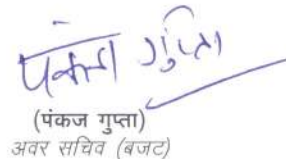 पंकज गुप्ता
(पंकज गुप्ता)
अवर सचिव (बजट)